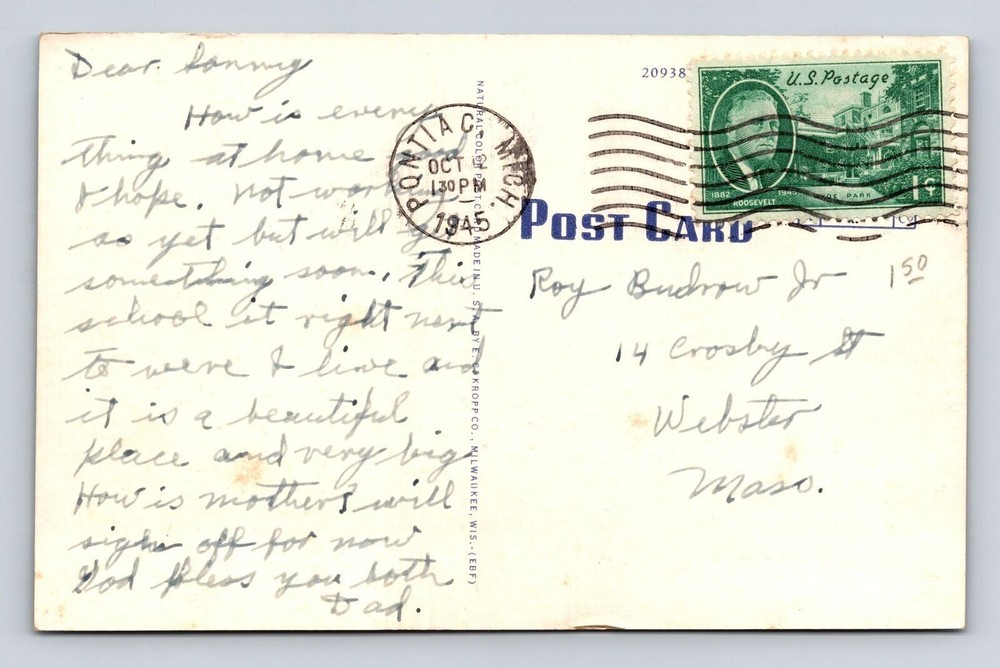 Dear Sonny
How is every
thing at home and
I hope. Not working
as yet but will get
something soon. This
school it right next
to were I live and
it is a beautiful
place and very big
How is mother I will
sign off for now
God bless you both
Dad.
NATURAL COLOR POST CARD MADE IN U. S. A. BY E. C. KROPP CO., MILWAUKEE, WIS.-(EBF)
PONTIAC MICH.
OCT
1 30 PM
1945
20938
U.S. Postage
1882 1945
ROOSEVELT
HYDE PARK
1¢
POST CARD
1 50
Roy Budrow Jr
14 Crosby St
Webster
Mass.